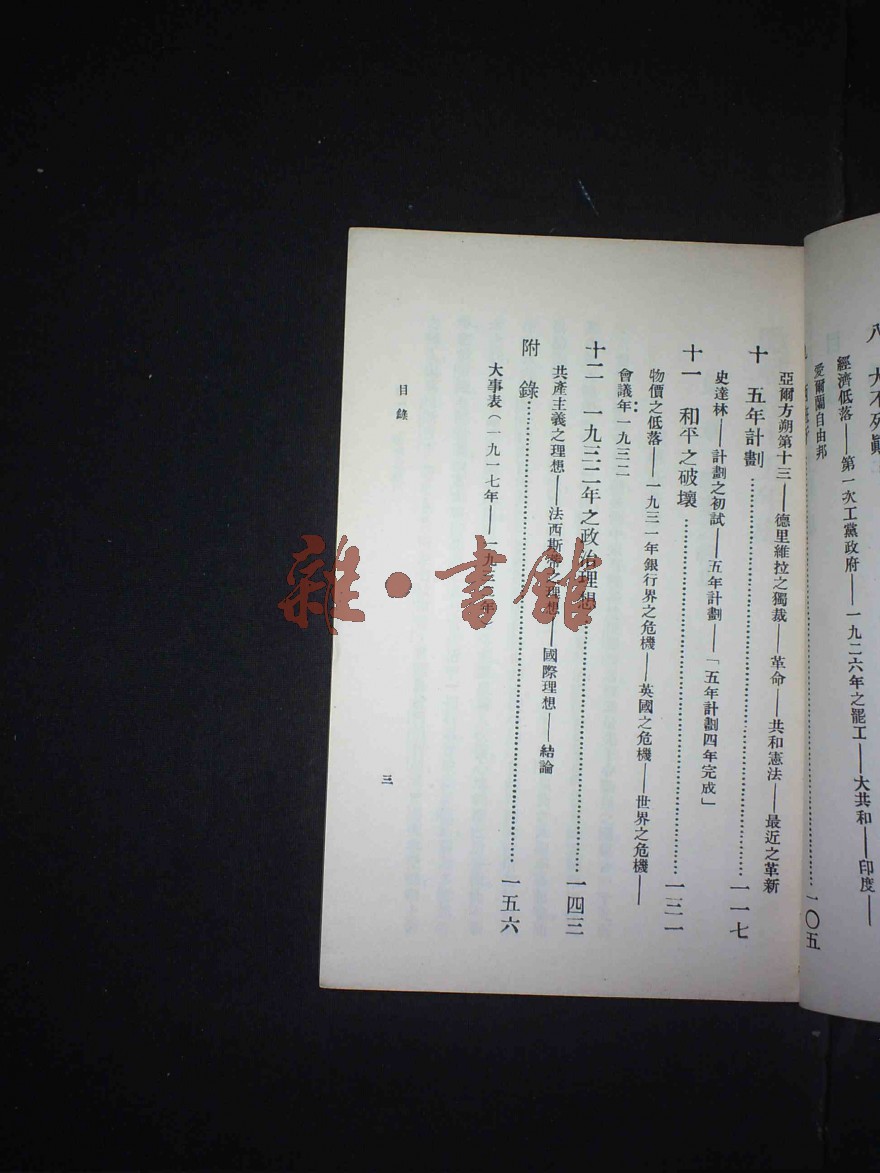 八 大不列顚
經濟低落——第一次工黨政府——一九二六年之罷工——大共和——印度——
愛爾蘭自由邦
一〇五
亞爾方朔第十三——德里維拉之獨裁——革命——共和憲法——最近之革新
十 五年計劃 一一七
史達林——計劃之初試——五年計劃——「五年計劃四年完成」
十一 和平之破壞 一三一
物價之低落——一九三一年銀行界之危機——英國之危機——世界之危機——
會議年一九三二
十二 一九三二年之政治理想 一四三
共產主義之理想——法西斯蒂之理想——國際理想——結論
附錄 一五六
大事表(一九一七年——一九三三年
目錄
三
雜·書館